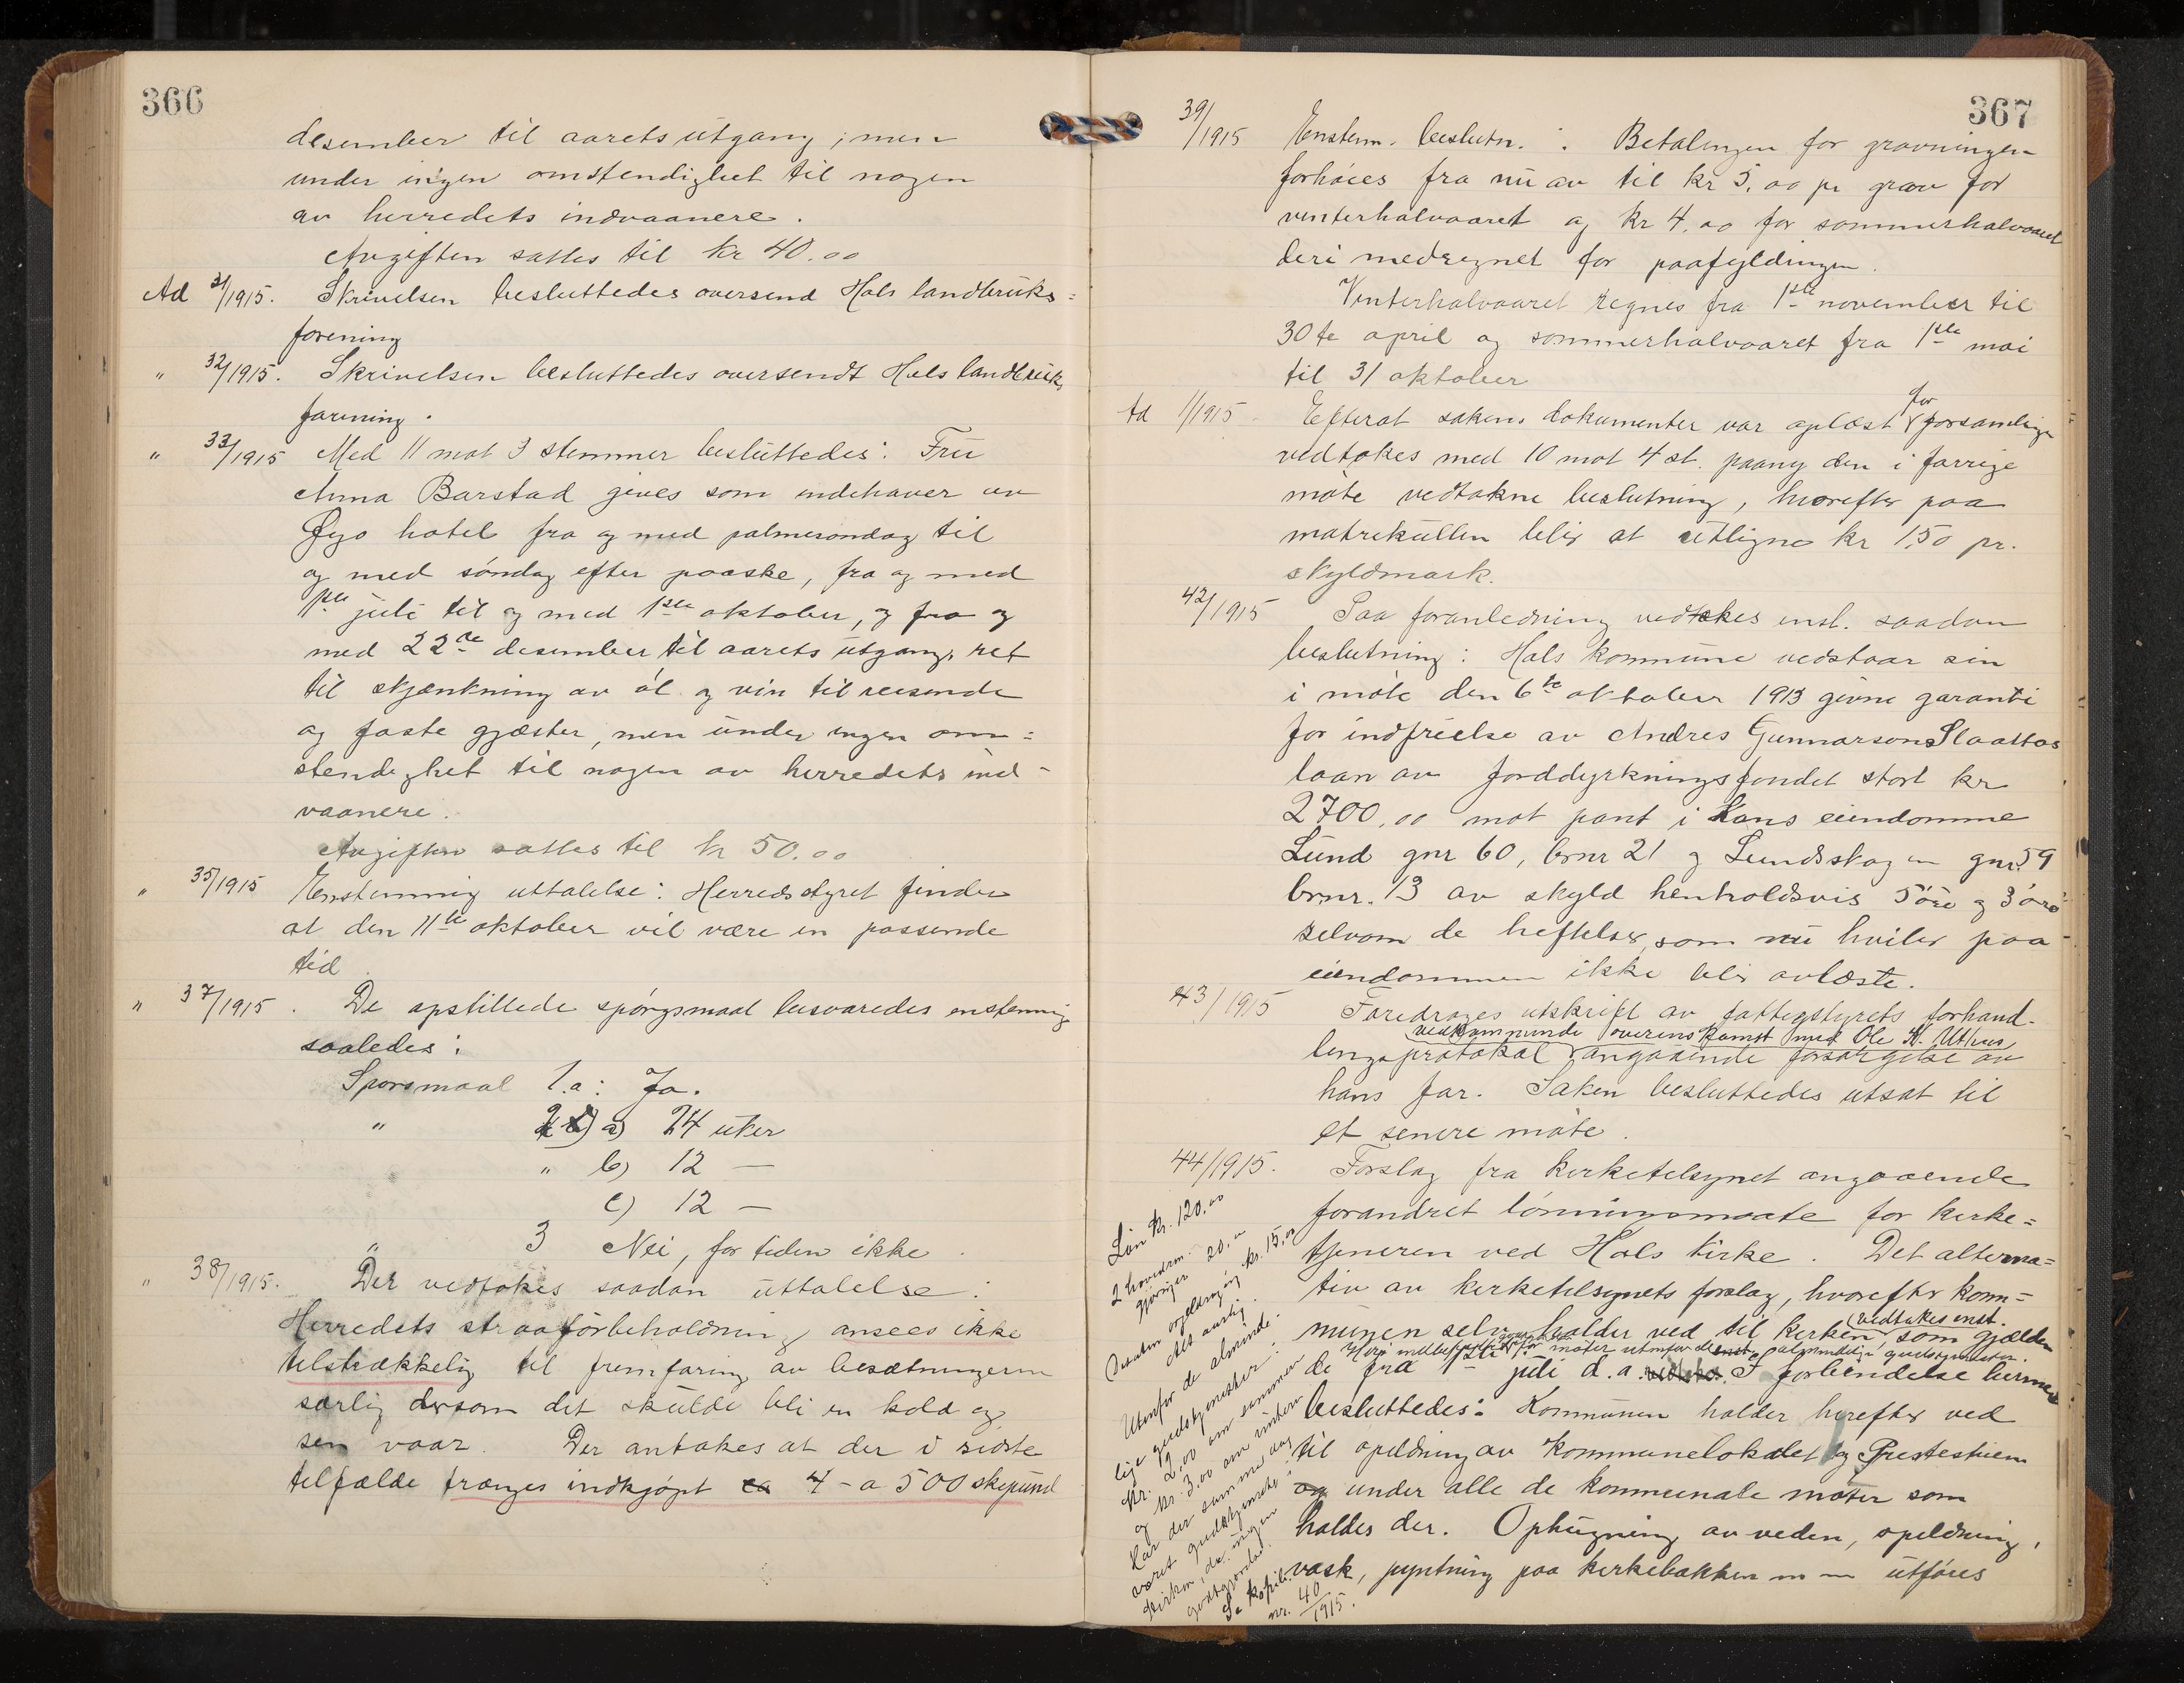 366
desember til aarets utgang; men
under ingen omstendighet til nogen
av herredets indvaanere.
Avgiften sattes til kr 40.00
Ad 31/1915. Skrivelsen besluttedes oversend Hals landbruks=
forening
" 32/1915. Skrivelsen besluttedes oversendt Hals landbruks
forening.
" 33/1915 Med 11 mot 3 stemmer besluttedes: Fru
Anna Barstad gives som indehaver av
Øyo hotel fra og med palmesøndag til
og med søndag efter paaske, fra og med
1ste juli til og med 1ste oktober, og fra og
med 22de desember til aarets utgang, ret
til skjænkning av øl og vin til reisende
og faste gjæster, men under ingen om=
stendighet til nogen av herredets ind-
vaanere.
Avgiften sattes til kr 50.00
" 35/1915 Enstemmig uttalelse: Herredsstyret finder
at den 11te oktober vil være en passende
tid.
" 37/1915. De opstillede spørgsmaal besvaredes enstemmig
saaledes:
Spørsmaal 1.a: Ja.
" 2 a) 24 uker
" b) 12 —
c) 12 —
" 3 Nei, for tiden ikke.
" 38/1915. Der vedtokes saadan uttalelse:
Herredets straaforbeholdning ansees ikke
tilstrækkelig til fremforing av besætningerne
særlig dersom det skulde bli en kold og
sen vaar. Der antakes at der i sidste
tilfælde trænges indkjøpt ca 4 - a 500 skepund
367
39/1915 Enstem. beslutn.: Betalingen for gravningen
forhøies fra nu av til kr 5,00 pr grav for
vinterhalvaaret og kr 4,00 for sommerhalvaaret
deri medregnet for paafyldingen.
Vinterhalvaaret regnes fra 1ste november til
30te april og sommerhalvaaret fra 1ste mai
til 31 oktober
Ad 1/1915 - Efterat sakens dokumenter var oplæst for forsamlingen
vedtokes med 10 mot 4 st. paany den i forrige
møte vedtakne beslutning, hvorefter paa
matrikullen blir at utligne kr 1,50 pr.
skyldmark.
42/1915 Paa foranledning vedtokes enst. saadan
beslutning: Hals kommune vedstaar sin
i møte den 6te oktober 1913 givne garanti
for indfrielse av Andres Gunnarson Slaattas
laan av Jorddyrkningsfondet stort kr
2700,00 mot pant i hans eiendomme
Lund gnr 60, brnr 21 og Lundsskogen gnr. 59
brnr. 13 av skyld henholdsvis 5 øre og 3 øre
selvom de heftelser, som nu hviler paa
eiendommen ikke blir avlæste.
43/1915 Foredroges utskrift av fattigstyrets forhand-
vedkommende overenskomst med Ole K. Uthus
lingsprotokol angaaende forsørgelse av
hans far. Saken besluttedes utsat til
et senere møte.
44/1915. Forslag fra kirketilsynet angaaende
forandret lønningsmaate for kirke=
tjeneren ved Hols kirke. Det alterna=
tiv av kirketilsynets forslag, hvorefter kom=
vedtakes enst.
munen selv holder ved til kirken, som gjælden
de fra 1ste juli d.a. I forbindelse hermed
besluttedes: Kommunen holder herefter ved
til opildning av kommunelokalet og Prestestuen
og under alle de kommunale møter som
holdes der. Ophugning av veden, opildning,
vask, pyntning paa kirkebakken m m utføres
Løn kr. 120,00
2 hovedren-
gjøringer 20,00
Desuten opildning kr. 15,00
Alt aarlig.
Utenfor de alminde-
lige gudstjenester:
kr. 2,00 om sommeren
og kr. 3,00 om vinteren
Har der samme dag
været gudstjeneste i
kirken, da ingen
godtgjørelse.
Se kopib.
nr. 40/1915.